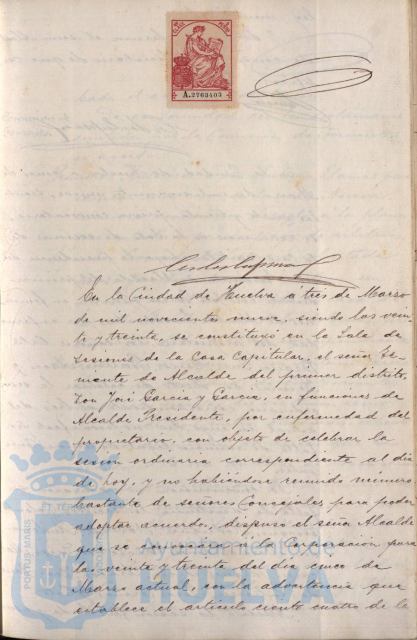 A.2763403
En la Ciudad de Huelva á tres de Marzo
de mil novecientos nueve, siendo las vein-
te y treinta, se constituyó en la Sala de
Sesiones de la Casa Capitular, el señor Te-
niente de Alcalde del primer distrito,
Don José García y García, en funciones de
Alcalde Presidente, por enfermedad del
propietario, con objeto de celebrar la
sesión ordinaria correspondiente al dia
de hoy, y no habiéndose reunido número
bastante de señores Concejales para poder
adoptar acuerdo, dispuso el señor Alcalde
que se convoque a la Corporación para
las veinte y treinta del dia cinco de
Marzo actual, con la advertencia que
establece el artículo ciento cuatro de la
PORTUS MARIS
Ayuntamiento de
HUELVA